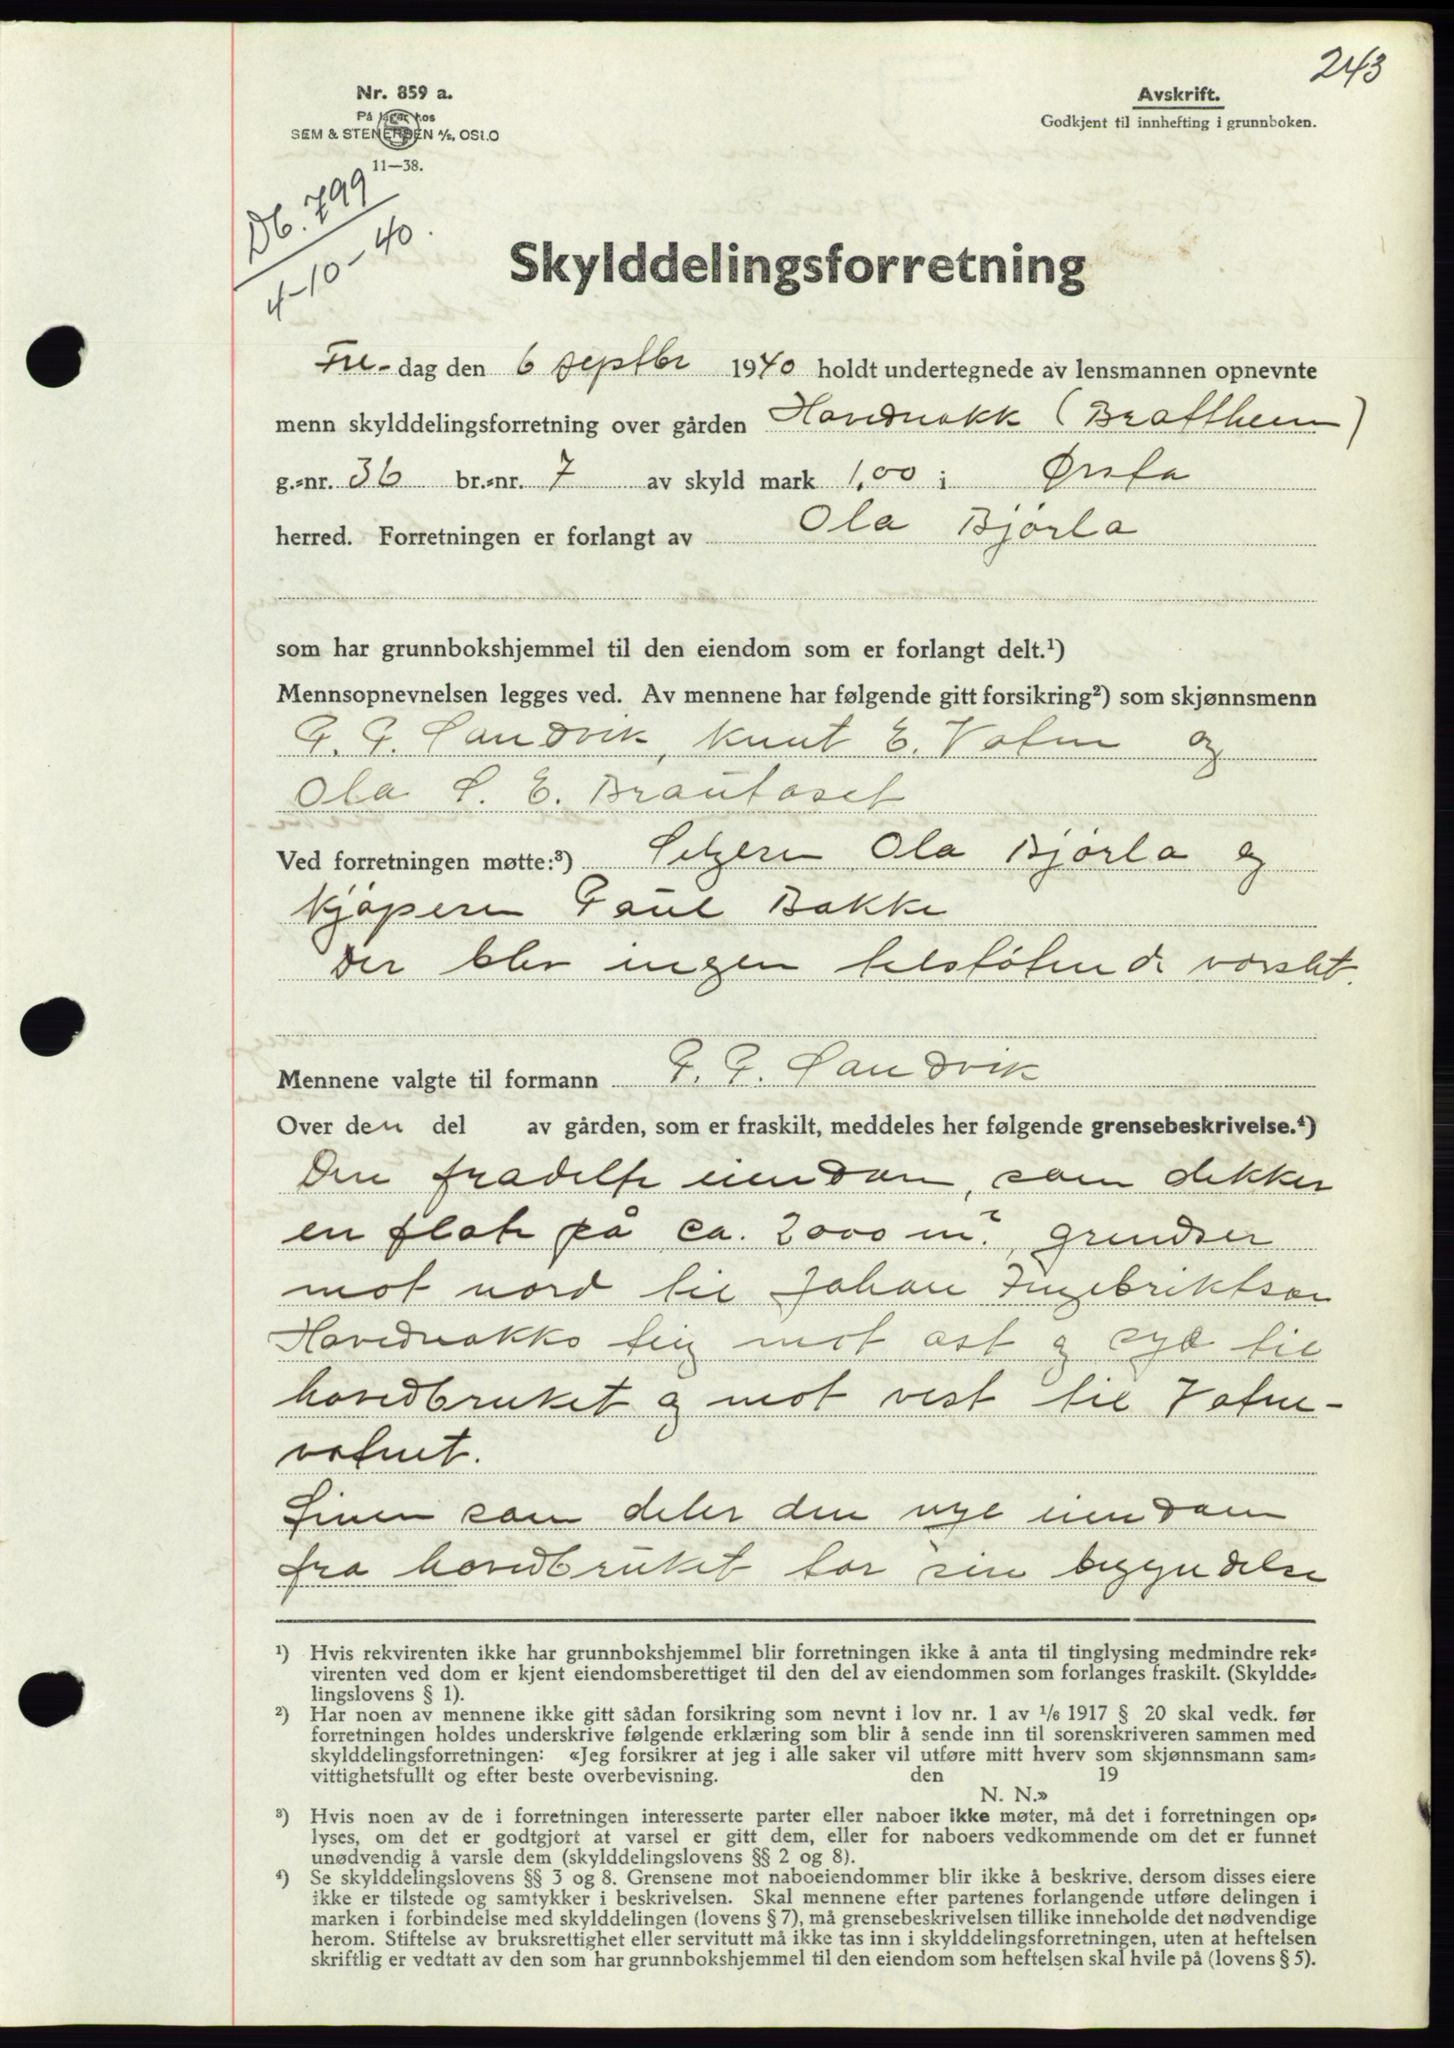 243
Nr. 859 a.
På lager hos
SEM & STENERSEN A/S, OSLO
11—38.
Avskrift.
Godkjent til innhefting i grunnboken.
Db. 799
4-10-40.
Skylddelingsforretning
Fre- dag den 6 septbr 1940 holdt undertegnede av lensmannen opnevnte
menn skylddelingsforretning over gården Hovdnakk (Brattheim)
g.=nr. 36 br.=nr. 7 av skyld mark 1,00 i Ørsta
herred. Forretningen er forlangt av Ola Bjørla
som har grunnbokshjemmel til den eiendom som er forlangt delt.¹)
Mennsopnevnelsen legges ved. Av mennene har følgende gitt forsikring²) som skjønnsmenn
P. P. Sandvik, Knut E. Vatne og
Ola S. E. Brautaset
Ved forretningen møtte:³) Selgeren Ola Bjørla og
kjøperen Paul Bakke
Der blev ingen tilstøtende varslet.
Mennene valgte til formann P. P. Sandvik
Over den del av gården, som er fraskilt, meddeles her følgende grensebeskrivelse.⁴)
Den fradelte eiendom, som dekker
en flate på ca. 2000 m², grendser
mot nord til Johan Ingebriktson
Hovdnakks teig mot øst og syd til
hovedbruket og mot vest til Vatne-
vatnet.
Linen som deler den nye eiendom
fra hovedbruket tar sin begyndelse
¹) Hvis rekvirenten ikke har grunnbokshjemmel blir forretningen ikke å anta til tinglysing medmindre rek=
virenten ved dom er kjent eiendomsberettiget til den del av eiendommen som forlanges fraskilt. (Skyldde=
lingslovens § 1).
²) Har noen av mennene ikke gitt sådan forsikring som nevnt i lov nr. 1 av 1/6 1917 § 20 skal vedk. før
forretningen holdes underskrive følgende erklæring som blir å sende inn til sorenskriveren sammen med
skylddelingsforretningen: «Jeg forsikrer at jeg i alle saker vil utføre mitt hverv som skjønnsmann sam=
vittighetsfullt og efter beste overbevisning. den 19
N. N.»
³) Hvis noen av de i forretningen interesserte parter eller naboer ikke møter, må det i forretningen op=
lyses, om det er godtgjort at varsel er gitt dem, eller for naboers vedkommende om det er funnet
unødvendig å varsle dem (skylddelingslovens §§ 2 og 8).
⁴) Se skylddelingslovens §§ 3 og 8. Grensene mot naboeiendommer blir ikke å beskrive, dersom disses eiere
ikke er tilstede og samtykker i beskrivelsen. Skal mennene efter partenes forlangende utføre delingen i
marken i forbindelse med skylddelingen (lovens § 7), må grensebeskrivelsen tillike inneholde det nødvendige
herom. Stiftelse av bruksrettighet eller servitutt må ikke tas inn i skylddelingsforretningen, uten at heftelsen
skriftlig er vedtatt av den som har grunnbokshjemmel til den eiendom som heftelsen skal hvile på (lovens § 5).